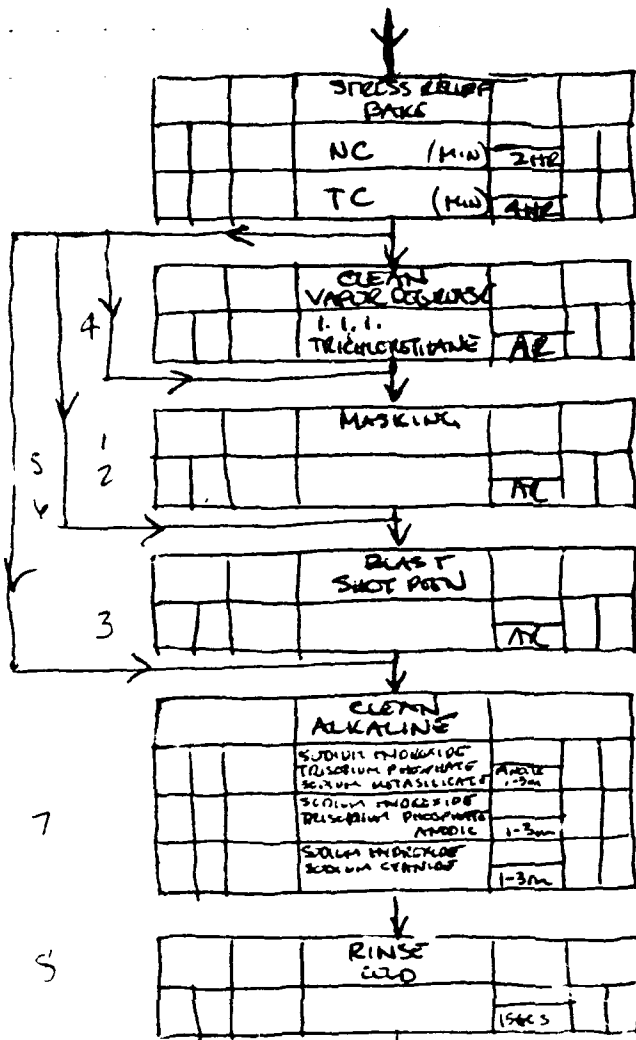 STRESS RELIEF
BAKE
NC (MIN) 2HR
TC (MIN) 4HR
CLEAN
VAPOR DEGREASE
4
1.1.1.
TRICHLORETHANE AR
MASKING
1
2
AR
5
BLAST
SHOT PEEN
3
AR
CLEAN
ALKALINE
SODIUM HYDROXIDE
TRISODIUM PHOSPHATE
SODIUM METASILICATE 1-3m
SODIUM HYDROXIDE
TRISODIUM PHOSPHATE
ANODIC 1-3m
7
SODIUM HYDROXIDE
SODIUM CYANIDE
1-3m
RINSE
5